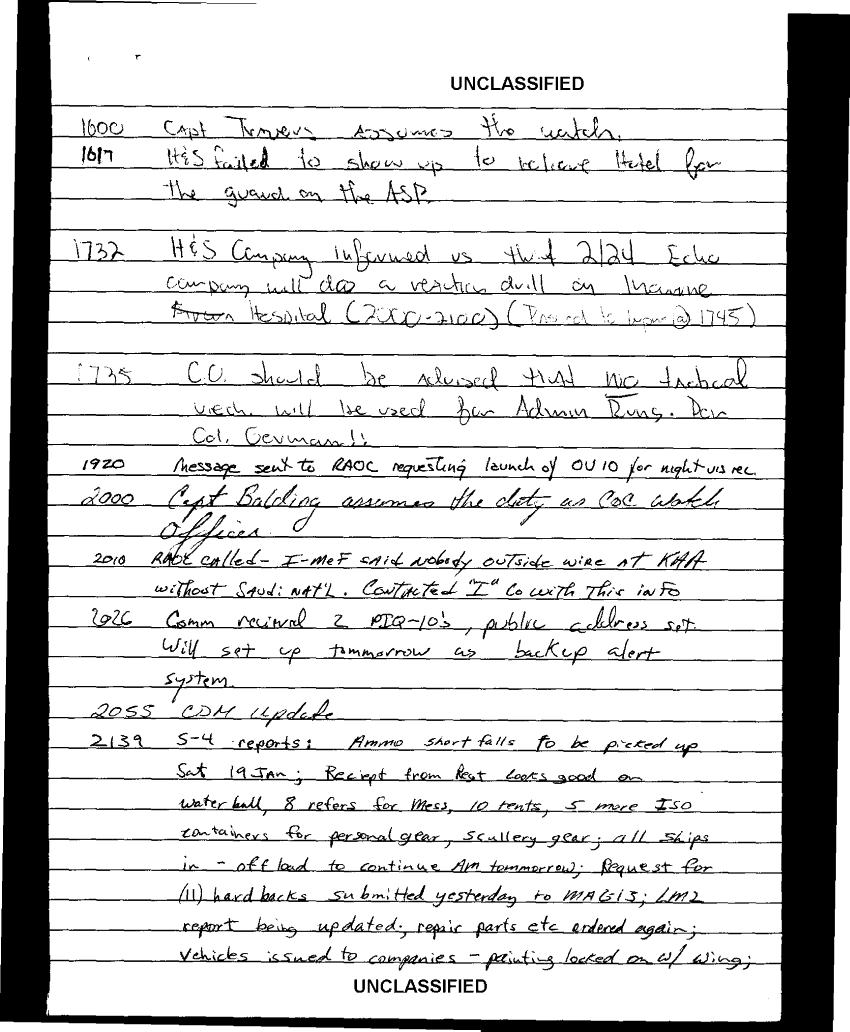 UNCLASSIFIED
1600 Capt Travers Assumes the watch.
1617 H&S failed to show up to relieve Hotel for
the guard on the ASP.
1732 H&S Company informed us that 2/24 Echo
company will do a reaction drill on Marine
Hospital (2000-2100) (Passed to @ 1745)
1735 C.O. should be advised that no tactical
veh. will be used for Admin Runs. Per
Col. German!!
1920 Message sent to RAOC requesting launch of OV10 for night vis rec.
2000 Capt Balding assumes the duty as COC Watch
Officer.
2010 RAOC called - I-MEF said nobody outside wire at KAA
without Saudi NAT'L. Contacted "I" Co with This info
2026 Comm recieved 2 PIQ-10's, public address set.
Will set up tommorrow as backup alert
system.
2055 CDM Update
2139 S-4 reports: Ammo short falls to be picked up
Sat 19 Jan; Reciept from Regt looks good on
water bull, 8 refers for Mess, 10 tents, 5 more ISO
containers for personal gear, scullery gear; all ships
in - off load to continue AM tommorrow; Request for
(11) hardbacks submitted yesterday to MAG13; LM2
report being updated; repair parts etc ordered again;
Vehicles issued to companies - painting locked on w/ wing;
UNCLASSIFIED